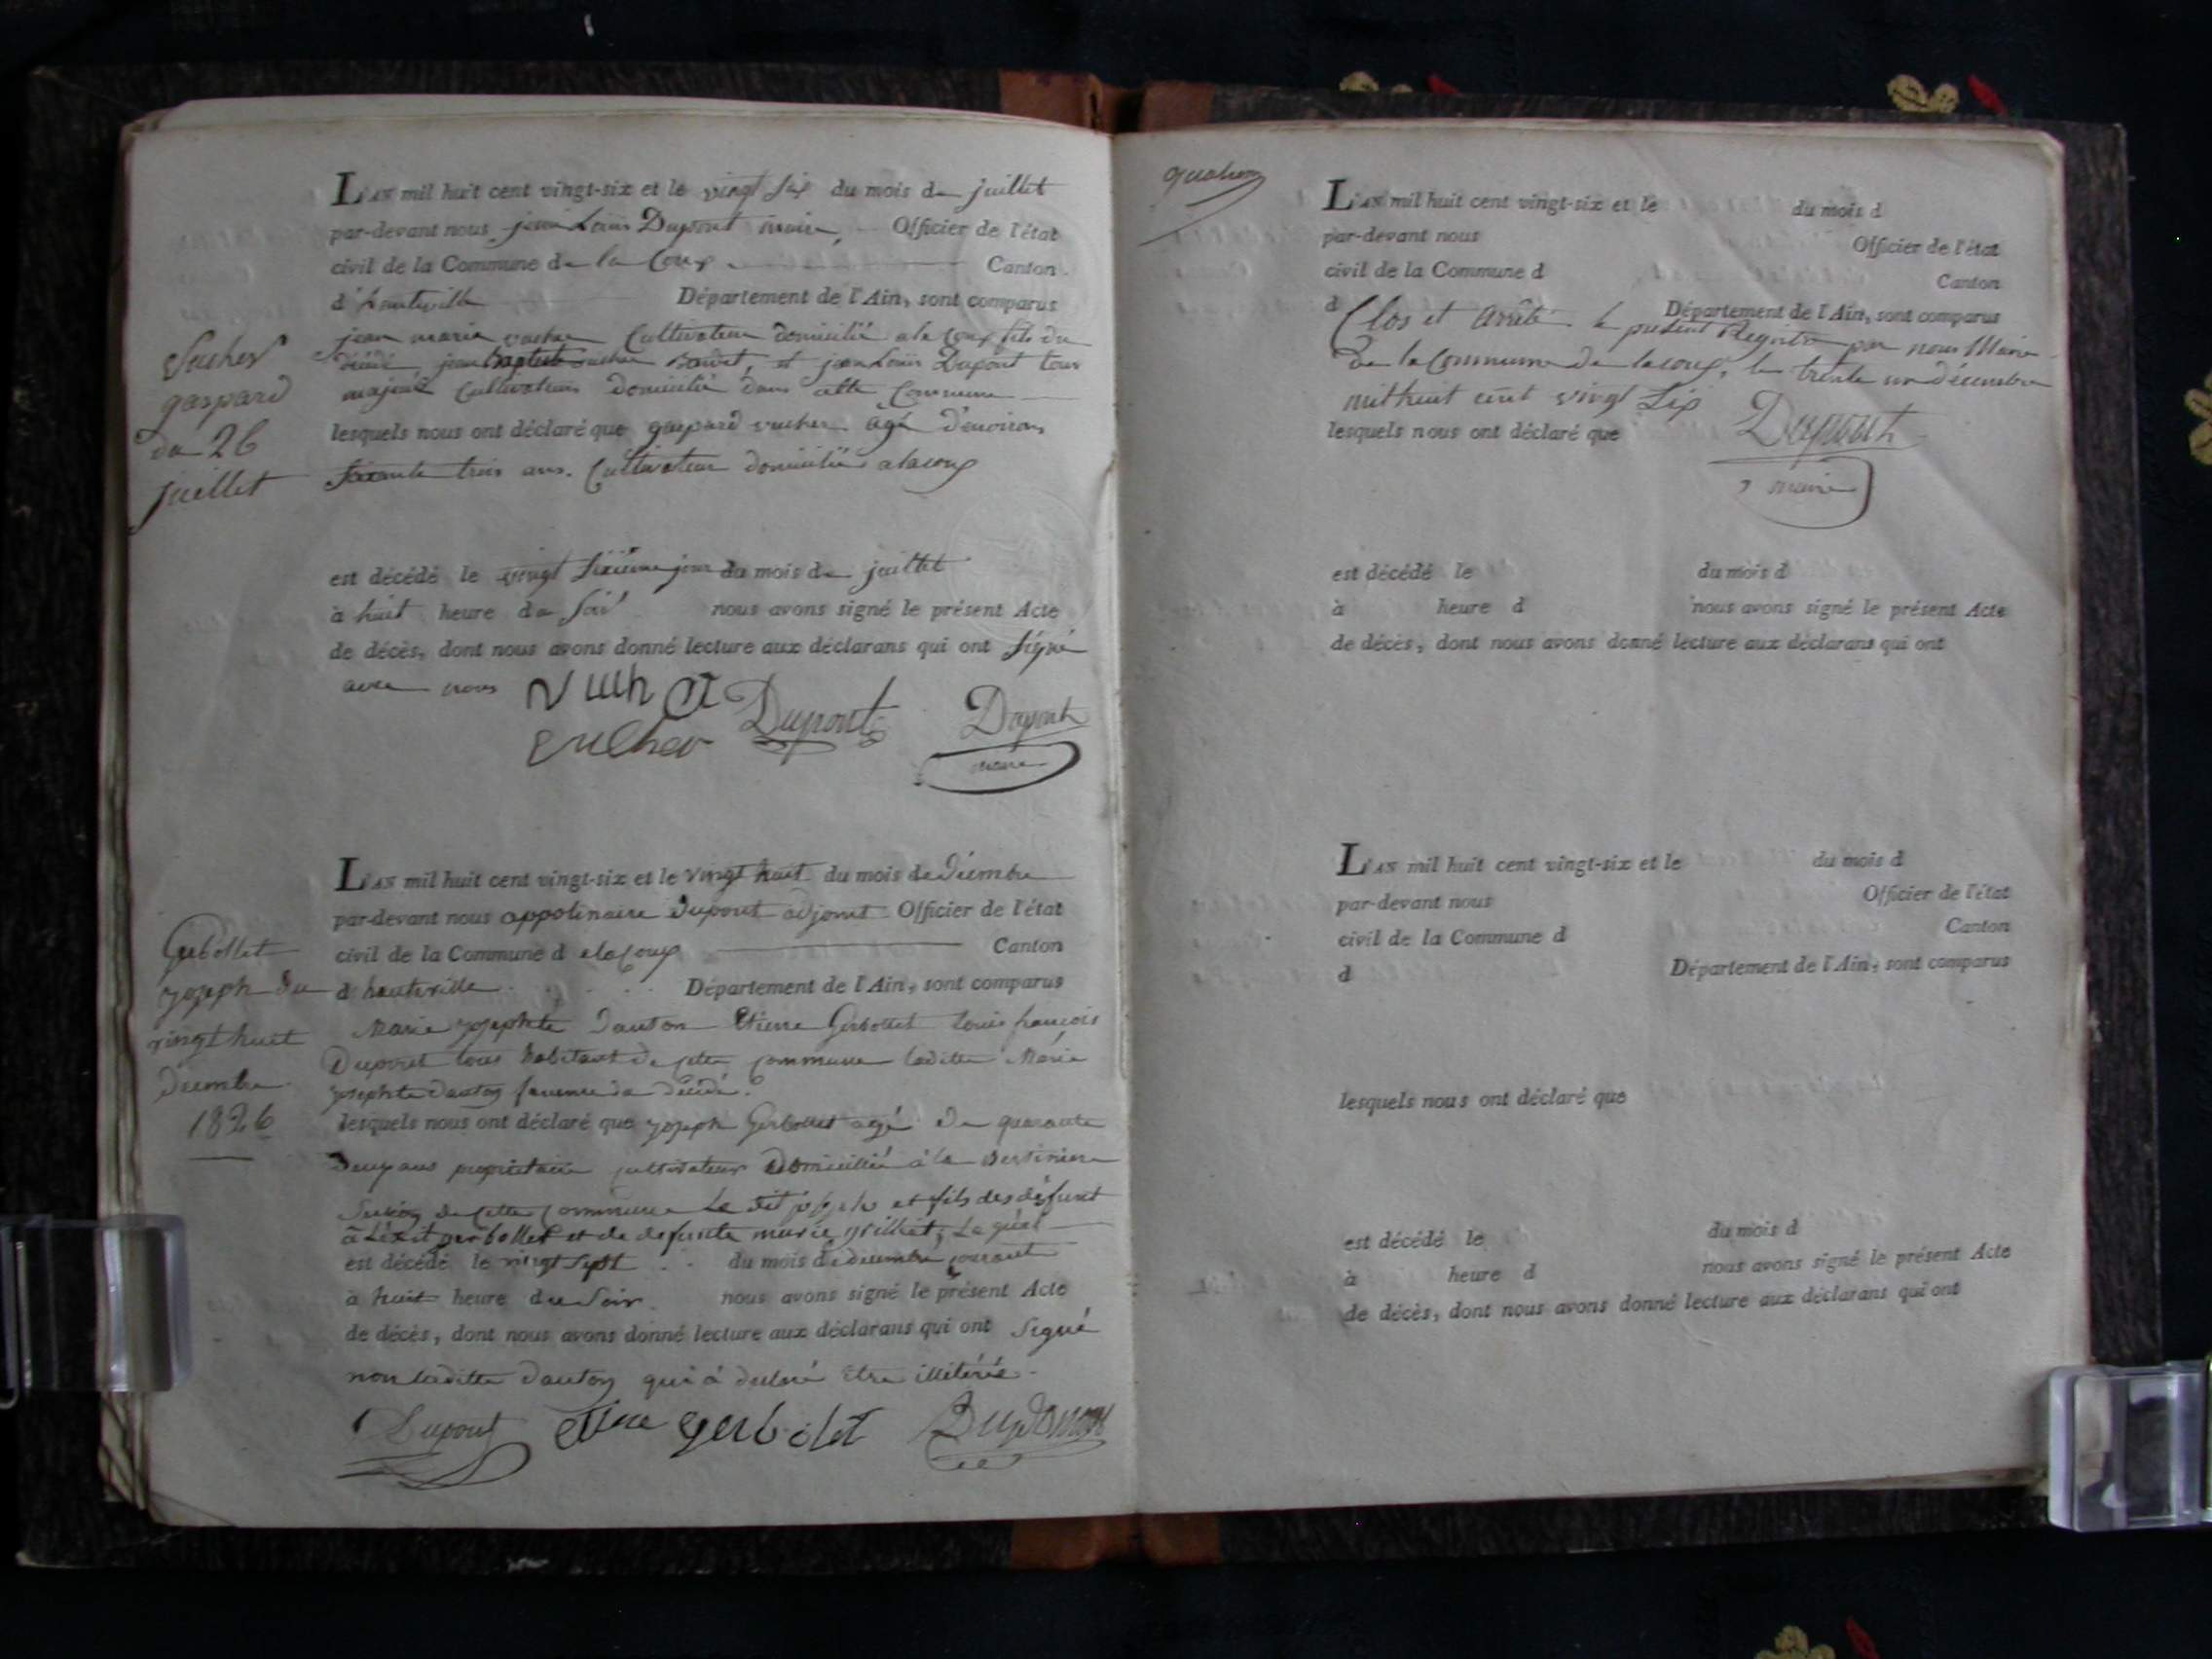 L'AN mil huit cent vingt-six et le vingt six du mois de juillet
par-devant nous jean Louis Dupont maire, Officier de l'état
civil de la Commune de la Coux Canton
d'hauteville Département de l'Ain, sont comparus
jean marie vucher Cultivateur domicilié a la coux fils du
décédé, jean Baptiste vucher et jean Louis Dupont tous
majeur Cultivateurs domicilié dans cette Commune
lesquels nous ont déclaré que gaspard vucher agé d'environ
soixante trois ans. Cultivateur domicilié a lacoux
Vucher
gaspard
du 26
juillet
est décédé le vingt sixième jour du mois de juillet
à huit heure du soir nous avons signé le présent Acte
de décès, dont nous avons donné lecture aux déclarans qui ont signé
avec nous
vucher Dupont Dupont
maire
L'AN mil huit cent vingt-six et le vingt huit du mois de décembre
par-devant nous appolinaire Dupont adjoint Officier de l'état
civil de la Commune d elacoux Canton
d hauteville Département de l'Ain, sont comparus
Marie josephte dauton Etiene Gerbollet louis françois
Dupont tous habitant de cette commune laditte Marie
josephte dauton femme du décédé.
lesquels nous ont déclaré que joseph Gerbollet agé de quarante
deux ans propriétaire cultivateur domicilié à la
section de cette commune Le dit joseph et fils des défunt
gerbollet et de defunte marie grilliet, Lequel
Gerbollet
joseph du
vingt huit
décembre
1826
est décédé le vingt sept du mois de décembre courant
à huit heure du soir nous avons signé le présent Acte
de décès, dont nous avons donné lecture aux déclarans qui ont signé
non laditte dauton qui à déclaré être illitérée.
Dupont etiene gerbolet Dupont
L'AN mil huit cent vingt-six et le du mois d
par-devant nous Officier de l'état
civil de la Commune d Canton
d Département de l'Ain, sont comparus
Clos et arrêté le présent Registre par nous Maire
de la Commune de lacoux, le trente un décembre
mil huit cent vingt six
Dupont
maire
lesquels nous ont déclaré que
est décédé le du mois d
à heure d nous avons signé le présent Acte
de décès, dont nous avons donné lecture aux déclarans qui ont
L'AN mil huit cent vingt-six et le du mois d
par-devant nous Officier de l'état
civil de la Commune d Canton
d Département de l'Ain, sont comparus
lesquels nous ont déclaré que
est décédé le du mois d
à heure d nous avons signé le présent Acte
de décès, dont nous avons donné lecture aux déclarans qui ont